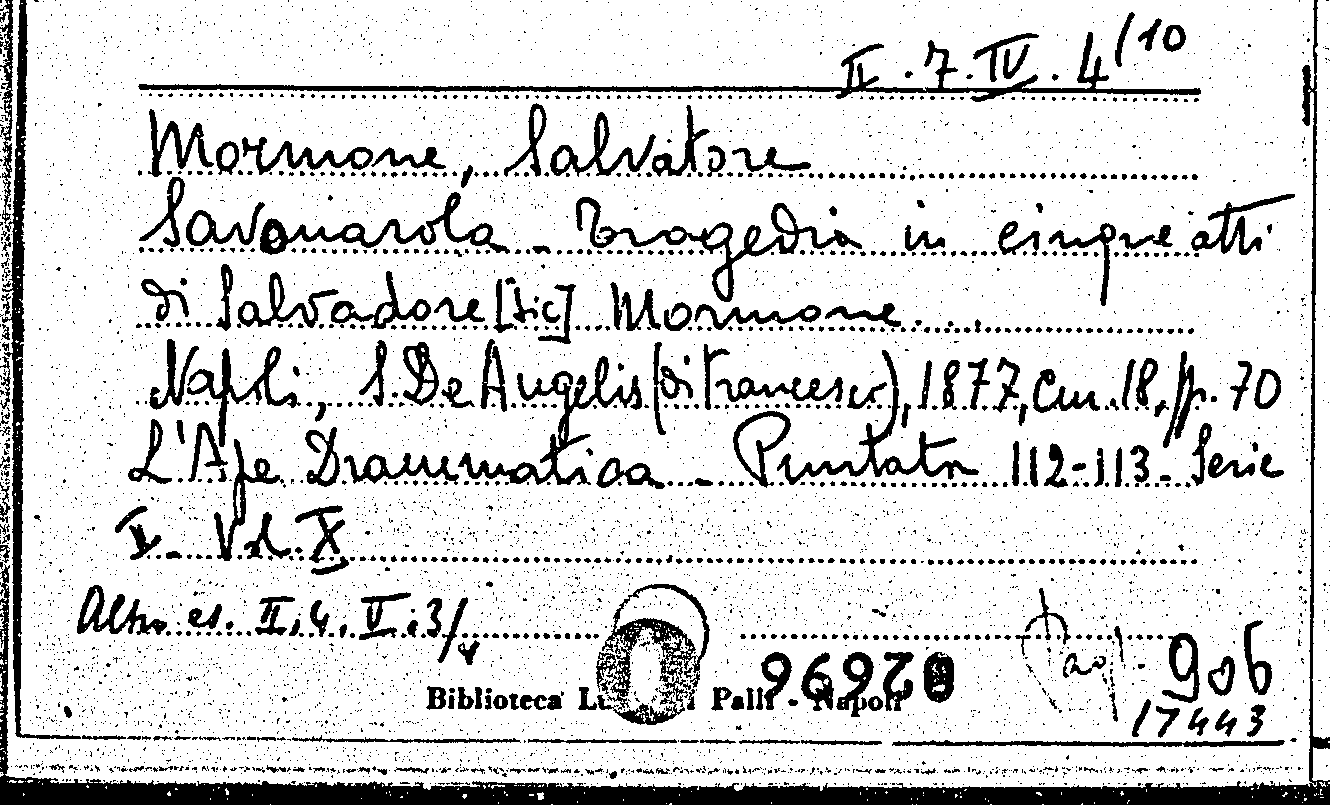 II.7.IV.4/10
Mormone, Salvatore
Savonarola - Tragedia in cinque atti
di Salvadore [sic] Mormone...
Napoli, S. De Angelis (di Francesco), 1877, cm. 18, pp. 70
L'Ape Drammatica - Puntata 112-113 - Serie
I - Vol. X
Altro es. II.4.V.3/4
Biblioteca Palli - Napoli
96920
906
17443